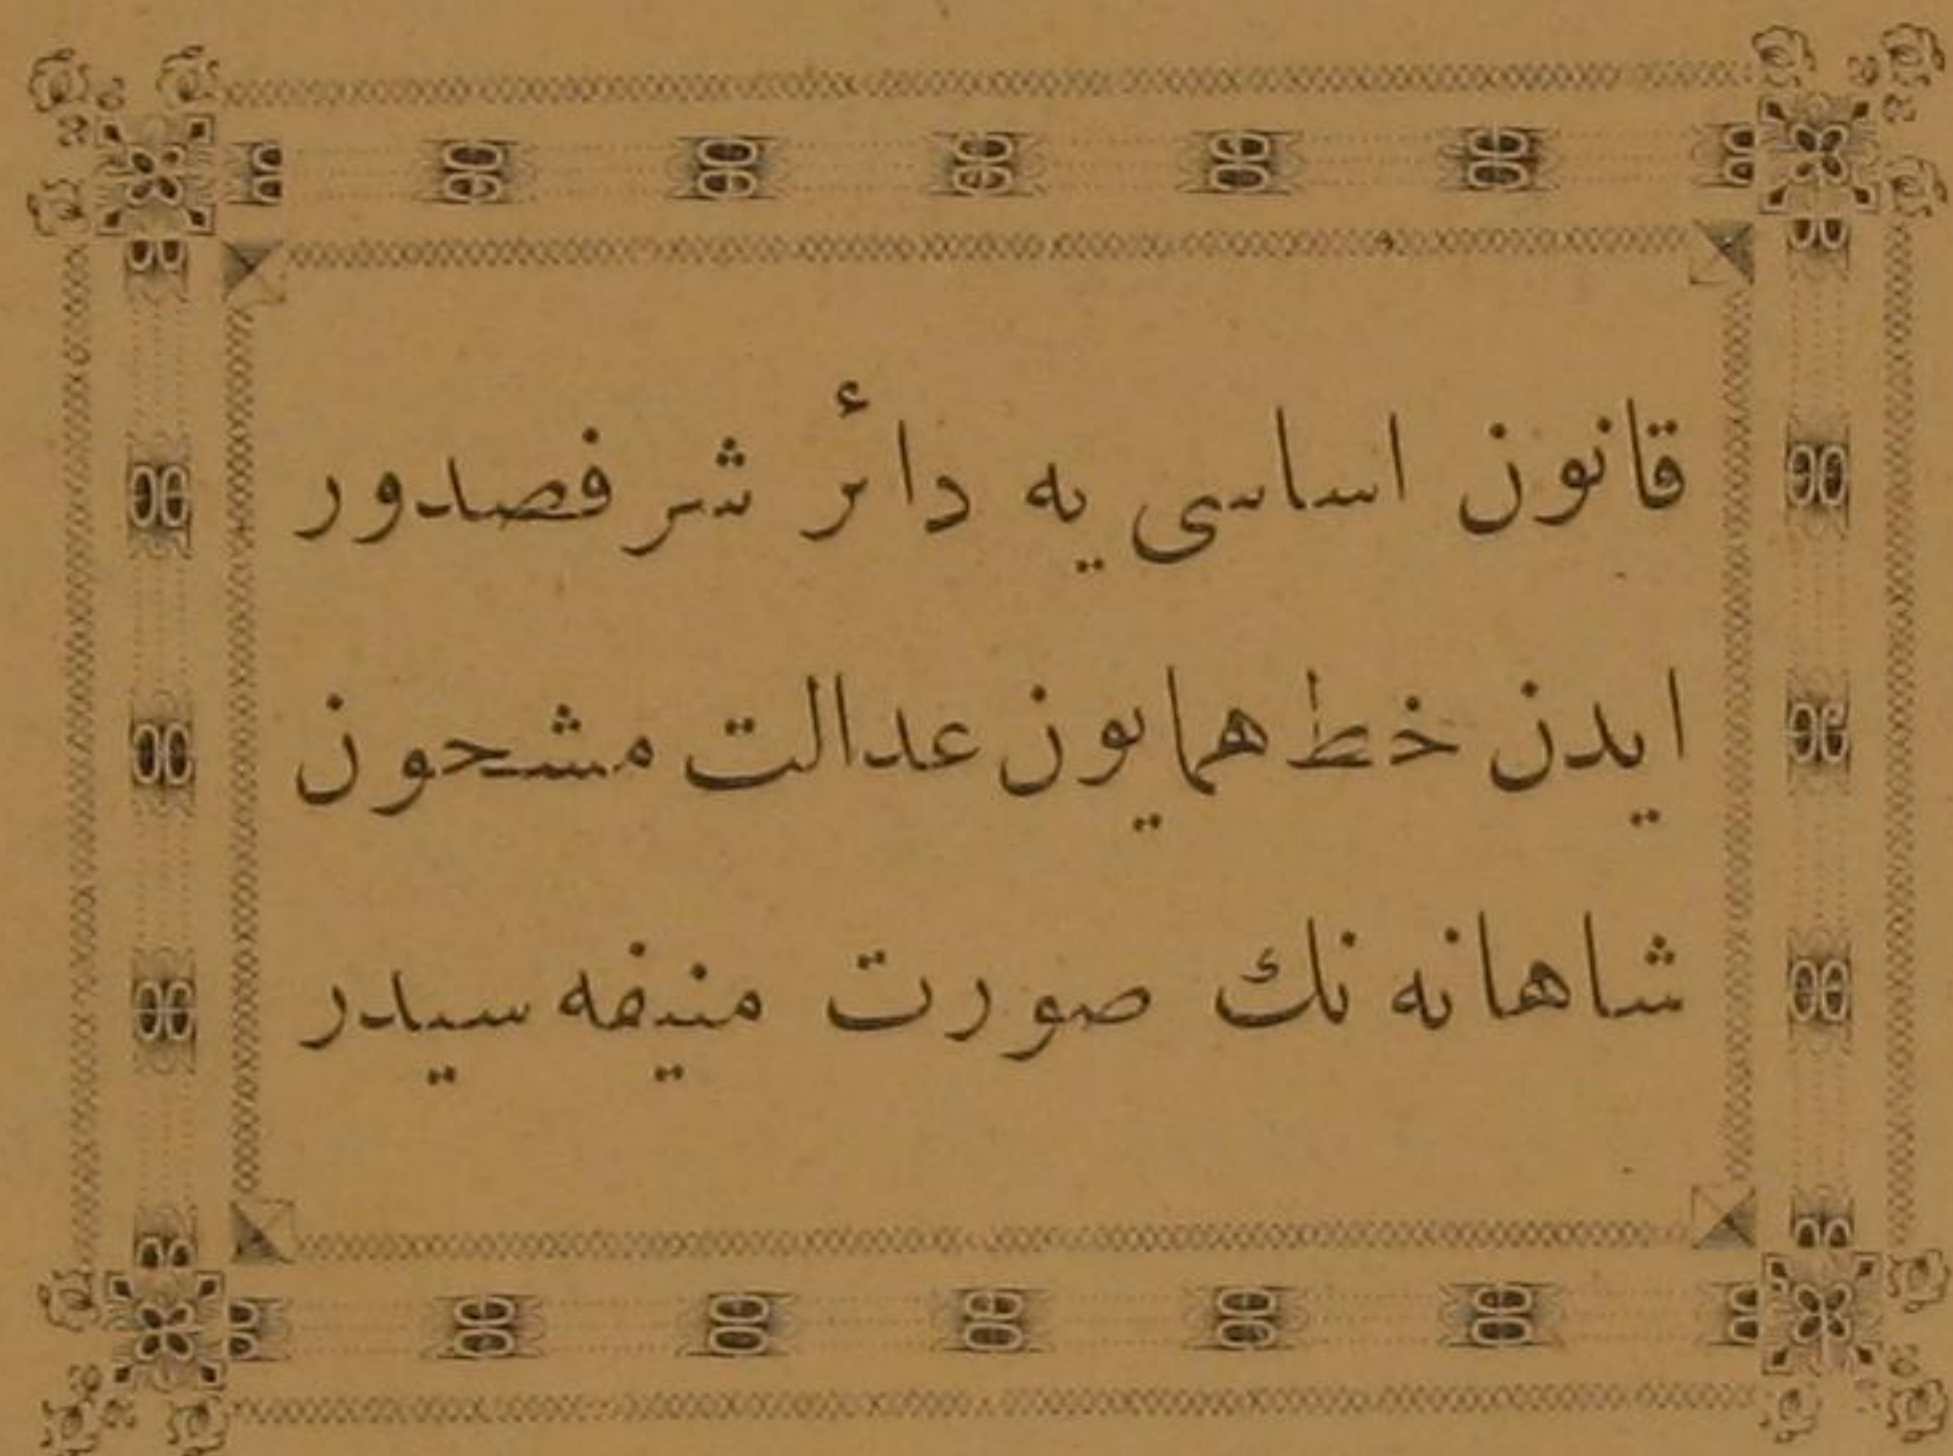 قانون اساسی یه دائر شرفصدور
ایدن خط همایون عدالت مشحون
شاهانه نك صورت منیفه سیدر